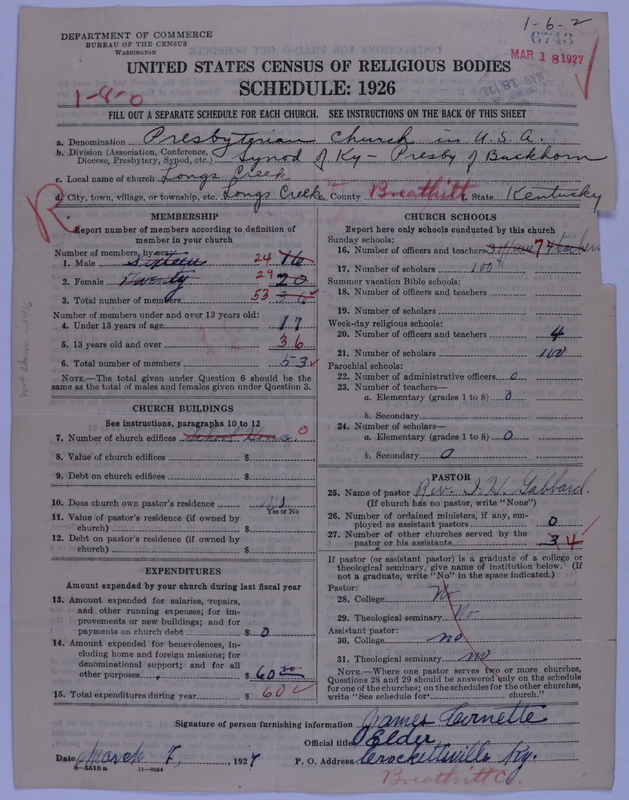 1-6-2
DEPARTMENT OF COMMERCE
BUREAU OF THE CENSUS
WASHINGTON
6743
MAR 18 1927
UNITED STATES CENSUS OF RELIGIOUS BODIES
SCHEDULE: 1926
1-9-0
FILL OUT A SEPARATE SCHEDULE FOR EACH CHURCH. SEE INSTRUCTIONS ON THE BACK OF THIS SHEET
a. Denomination Presbyterian Church in U.S.A.
b. Division (Association, Conference, Diocese, Presbytery, Synod, etc.) Synod of Ky - Presby of Buckhorn
c. Local name of church Longs Creek
d. City, town, village, or township, etc. Longs Creek County Breathitt State Kentucky
R
MEMBERSHIP
Report number of members according to definition of member in your church
Number of members, by sex:
1. Male Sixteen 24 16
2. Female Twenty 29 20
3. Total number of members 53 36
Number of members under and over 13 years old:
4. Under 13 years of age 17
5. 13 years old and over 36
6. Total number of members 53
NOTE.—The total given under Question 6 should be the same as the total of males and females given under Question 3.
CHURCH BUILDINGS
See instructions, paragraphs 10 to 12
7. Number of church edifices School House. 0
8. Value of church edifices $
9. Debt on church edifices $
10. Does church own pastor's residence no
Yes or No
11. Value of pastor's residence (if owned by church) $
12. Debt on pastor's residence (if owned by church) $
EXPENDITURES
Amount expended by your church during last fiscal year
13. Amount expended for salaries, repairs, and other running expenses; for improvements or new buildings; and for payments on church debt $ 0
14. Amount expended for benevolences, including home and foreign missions; for denominational support; and for all other purposes $ 60.00
15. Total expenditures during year $ 60
CHURCH SCHOOLS
Report here only schools conducted by this church
Sunday schools:
16. Number of officers and teachers 7 teachers
17. Number of scholars 100
Summer vacation Bible schools:
18. Number of officers and teachers
19. Number of scholars
Week-day religious schools:
20. Number of officers and teachers 4
21. Number of scholars 100
Parochial schools:
22. Number of administrative officers 0
23. Number of teachers—
a. Elementary (grades 1 to 8) 0
b. Secondary
24. Number of scholars—
a. Elementary (grades 1 to 8) 0
b. Secondary 0
PASTOR
25. Name of pastor Rev. I. H. Gabbard.
(If church has no pastor, write "None")
26. Number of ordained ministers, if any, employed as assistant pastors 0
27. Number of other churches served by the pastor or his assistants 3 4
If pastor (or assistant pastor) is a graduate of a college or theological seminary, give name of institution below. (If not a graduate, write "No" in the space indicated.)
Pastor:
28. College No
29. Theological seminary No
Assistant pastor:
30. College no
31. Theological seminary no
NOTE.—Where one pastor serves two or more churches, Questions 28 and 29 should be answered only on the schedule for one of the churches; on the schedules for the other churches, write "See schedule for church."
Signature of person furnishing information James Cornette
Official title Elder
Date March 7, 1927 P. O. Address Crockettsville Ky.
8-5518 a 11-9054
Breathitt Co.